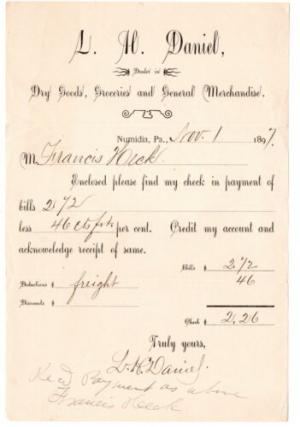 L. H. Daniel,
Dealer in
Dry Goods, Groceries and General Merchandise.
Numidia, Pa., Nov. 1 1897
M Francis Heck
Enclosed please find my check in payment of
bills 2.72
less 46 cts frt per cent. Credit my account and
acknowledge receipt of same.
Bills $ 2.72
Deductions $ freight 46
Discounts $
Check $ 2.26
Truly yours,
L. H. Daniel.
Rec'd Payment as above
Francis Heck